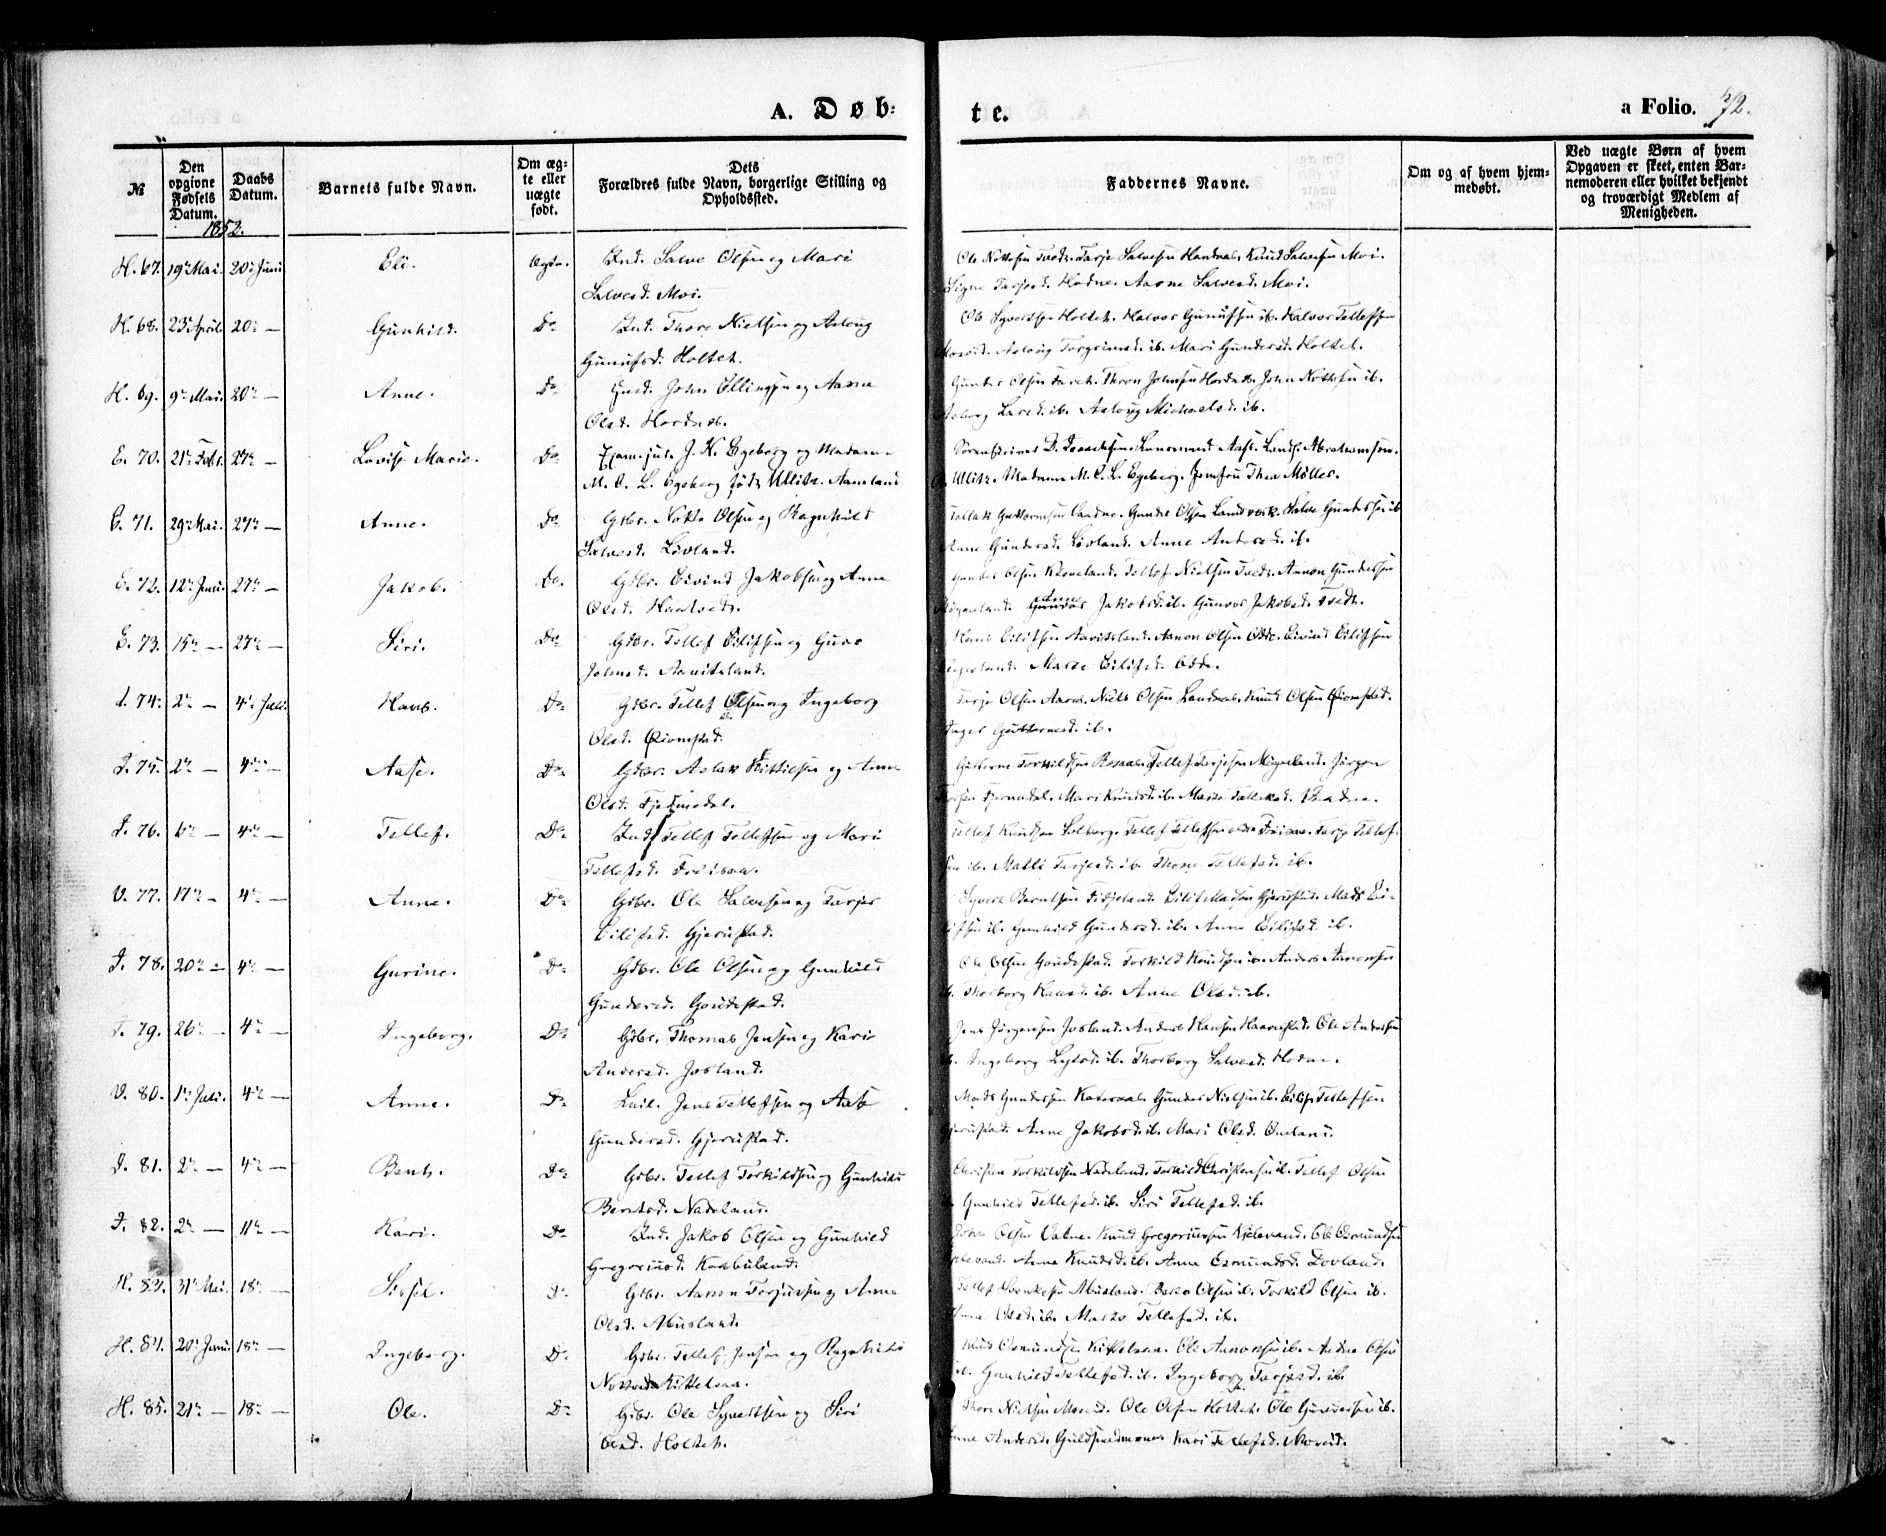 A. Døb:
te.
a Folio. 72.
№
Den opgivne Fødsels Datum.
Daabs Datum.
Barnets fulde Navn.
Om ægte eller uægte født.
Dets Forældres fulde Navn, borgerlige Stilling og Opholdssted.
Faddernes Navne.
Om og af hvem hjemmedøbt.
Ved uægte Børn af hvem Opgaven er skeet, enten Barnemoderen eller hvilket bekjendt og troværdigt Medlem af Menigheden.
1852.
H. 67. 19de Mai. 20de Juni Eli. Ægte. Ind. Salve Olsen og Mari
Salvesd. Moi.
Ole Nottosen Tvedt. Tarje Salvesen Handaas. Knud Salvesen Moi.
Signe Tarjesd. Hodne. Aasne Salvesd. Moi.
H. 68. 23de April 20de — Gunhild. Do Ind. Thore Nielsen og Aslaug
Gunufsd. Holtet.
Ole Syvertsen Holtet. Halvor Gunufsen ib. Halvor Tellefsen
Moseid. Aslaug Torgrimsd. ib. Mari Gundersd. Holtet.
H. 69. 9de Mai. 20de — Anne. Do John Ellingsen og Aasne
Olsd. Hordnes.
Gunder Olsen Tveit. Thron Johnsen Hordnes. John Nottosen ib.
Aasborg Larsd. ib. Aslaug Michaelsd. ib.
E. 70. 21de Febr. 27de — Lovise Marie. Do J. K. Egeberg og Madame
M. C. L. Egeberg født Ullitz. Aaneland
Sorenskriver D. Isaachsen. Madame M. C. L. Egeberg. Jomfru Thea Möller.
E. 71. 29de Mai. 27de — Anne. Do Gdbr. Notto Olsen og Ragnhild
Salvesd. Løvland.
Gunder Olsen Landverk. Salve Gundersen ib
Anne Gundersd. Løvland. Anne Andersd. ib.
E. 72. 12de Juni. 27de — Jakob. Do. Gdbr. Eivind Jakobsen og Anne
Olsd. Haatvedt.
Gunder Olsen Kleveland. Tellef Nielsen Tvedt. Aanon Gundersen
Anne Jakobsd. ib. Gunvor Jakobsd. Tvedt.
E. 73. 15de — 27de — Siri. Do Gdbr. Tellef Eilifsen og Guro
Johnsd. Aavitsland.
Hans Eilifsen Aavitsland. Aanon Olsen Odde. Eivind Eilifsen
Marte Eilifsd. Odde.
I. 74. 2de — 4de Juli. Hans. Do Gdbr. Tellef Olsen og Ingeborg
Olsd. Qvomstad.
Tarje Olsen Aaros. Niels Olsen Landaas. Knud Olsen Qvomstad.
Inger Guttormsd. ib.
I. 75. 2de — 4de — Aase. Do Gdbr. Aslak Kittilsen og Anne
Olsd. Fjermedal.
Guttorm Torkildsen Rosaas. Tellef Terjesen Mygland. Jörgen
Fjermedal. Mari Knudsd. ib. Marte Tellefsd.
I. 76. 6de — 4de — Tellef. Do Ind. Tellef Tellefsen og Mari
Tellefsd. Frøisaa.
Tellef Knudsen Solberg. Tellef Tellefsen ældre Frøisaa. Tarje Tellef-
sen ib. Malli Tarjesd. ib. Thone Tellefsd. ib.
V. 77. 17de — 4de — Anne. Do Gdbr. Ole Salvesen og Tarjer
Eilifsd. Gjerustad.
Syvert Berntsen Fidjeland. Eilif Madsen Gjerustad. Mads Ei-
lifsen ib. Gunhild Gundersd. ib. Anne Eilifsd. ib.
I. 78. 20de — 4de — Gurine. Do Gdbr. Ole Olsen og Gunhild
Gundersd. Goudestad.
Ole Olsen Goudestad. Torkild Knudsen ib. Anders Aanonsen
ib. Thorborg Hansd. ib. Anne Olsd. ib.
I. 79. 26de — 4de — Ingeborg. Do Gdbr. Thomas Jensen og Kari
Andersd. Josland.
Jens Jörgensen Josland. Anders Hansen Haavestad. Ole Andersen
ib. Ingeborg Larsd. ib. Thorborg Salvesd. Hodne.
V. 80. 1de Juli. 4de — Anne. Do Jens Tellefsen og Aase
Gundersd. Gjerustad.
Mads Gundersen Kateraas. Gunder Nielsen ib. Eilif Tellefsen
Gjerustad. Anne Jakobsd. ib. Mari Olsd. Omland.
I. 81. 2de — 4de — Bent. Do Gdbr. Tellef Torkildsen og Gunhild
Berntsd. Nateland.
Christen Torkildsen Nateland. Torkild Christensen ib. Tellef Olsen
ib. Gunhild Tellefsd. ib. Siri Tellefsd. ib.
I. 82. 2de — 11de — Kari. Do Ind. Jakob Olsen og Gunhild
Gregoriusd. Kaabuland.
John Olsen Vatne. Knud Gregoriussen Kjelevand. Ole Osmundsen
Kjelevand. Anne Knudsd. ib. Anne Osmundsd. Dovland.
H. 83. 31de Mai. 18de — Sissel. Do Gdbr. Aanon Terjussen og Anne
Olsd. Abusland.
Tellef Svenkesen Abusland. Berto Olsen ib. Torkild Olsen ib.
Anne Olsd. ib. Marte Tellefsd. ib.
H. 84. 20de Juni. 18de — Ingeborg. Do Gdbr. Tellef Jensen og Ragnhild
Nottosd. Kittelsaa.
Knud Osmundsen Kittelsaa. Ole Aanonsen ib. Anders Olsen
ib. Gunhild Tellefsd. ib. Ingeborg Tarjesd. ib.
H. 85. 21de — 18de — Ole. Do Gdbr. Ole Syvertsen og Siri
Olsd. Holtet.
Thore Nielsen Moseid. Ole Olsen Holtet. Ole Gundersen ib.
Anne Andersd. Guldsmedmoen. Kari Tellefsd. Moseid.